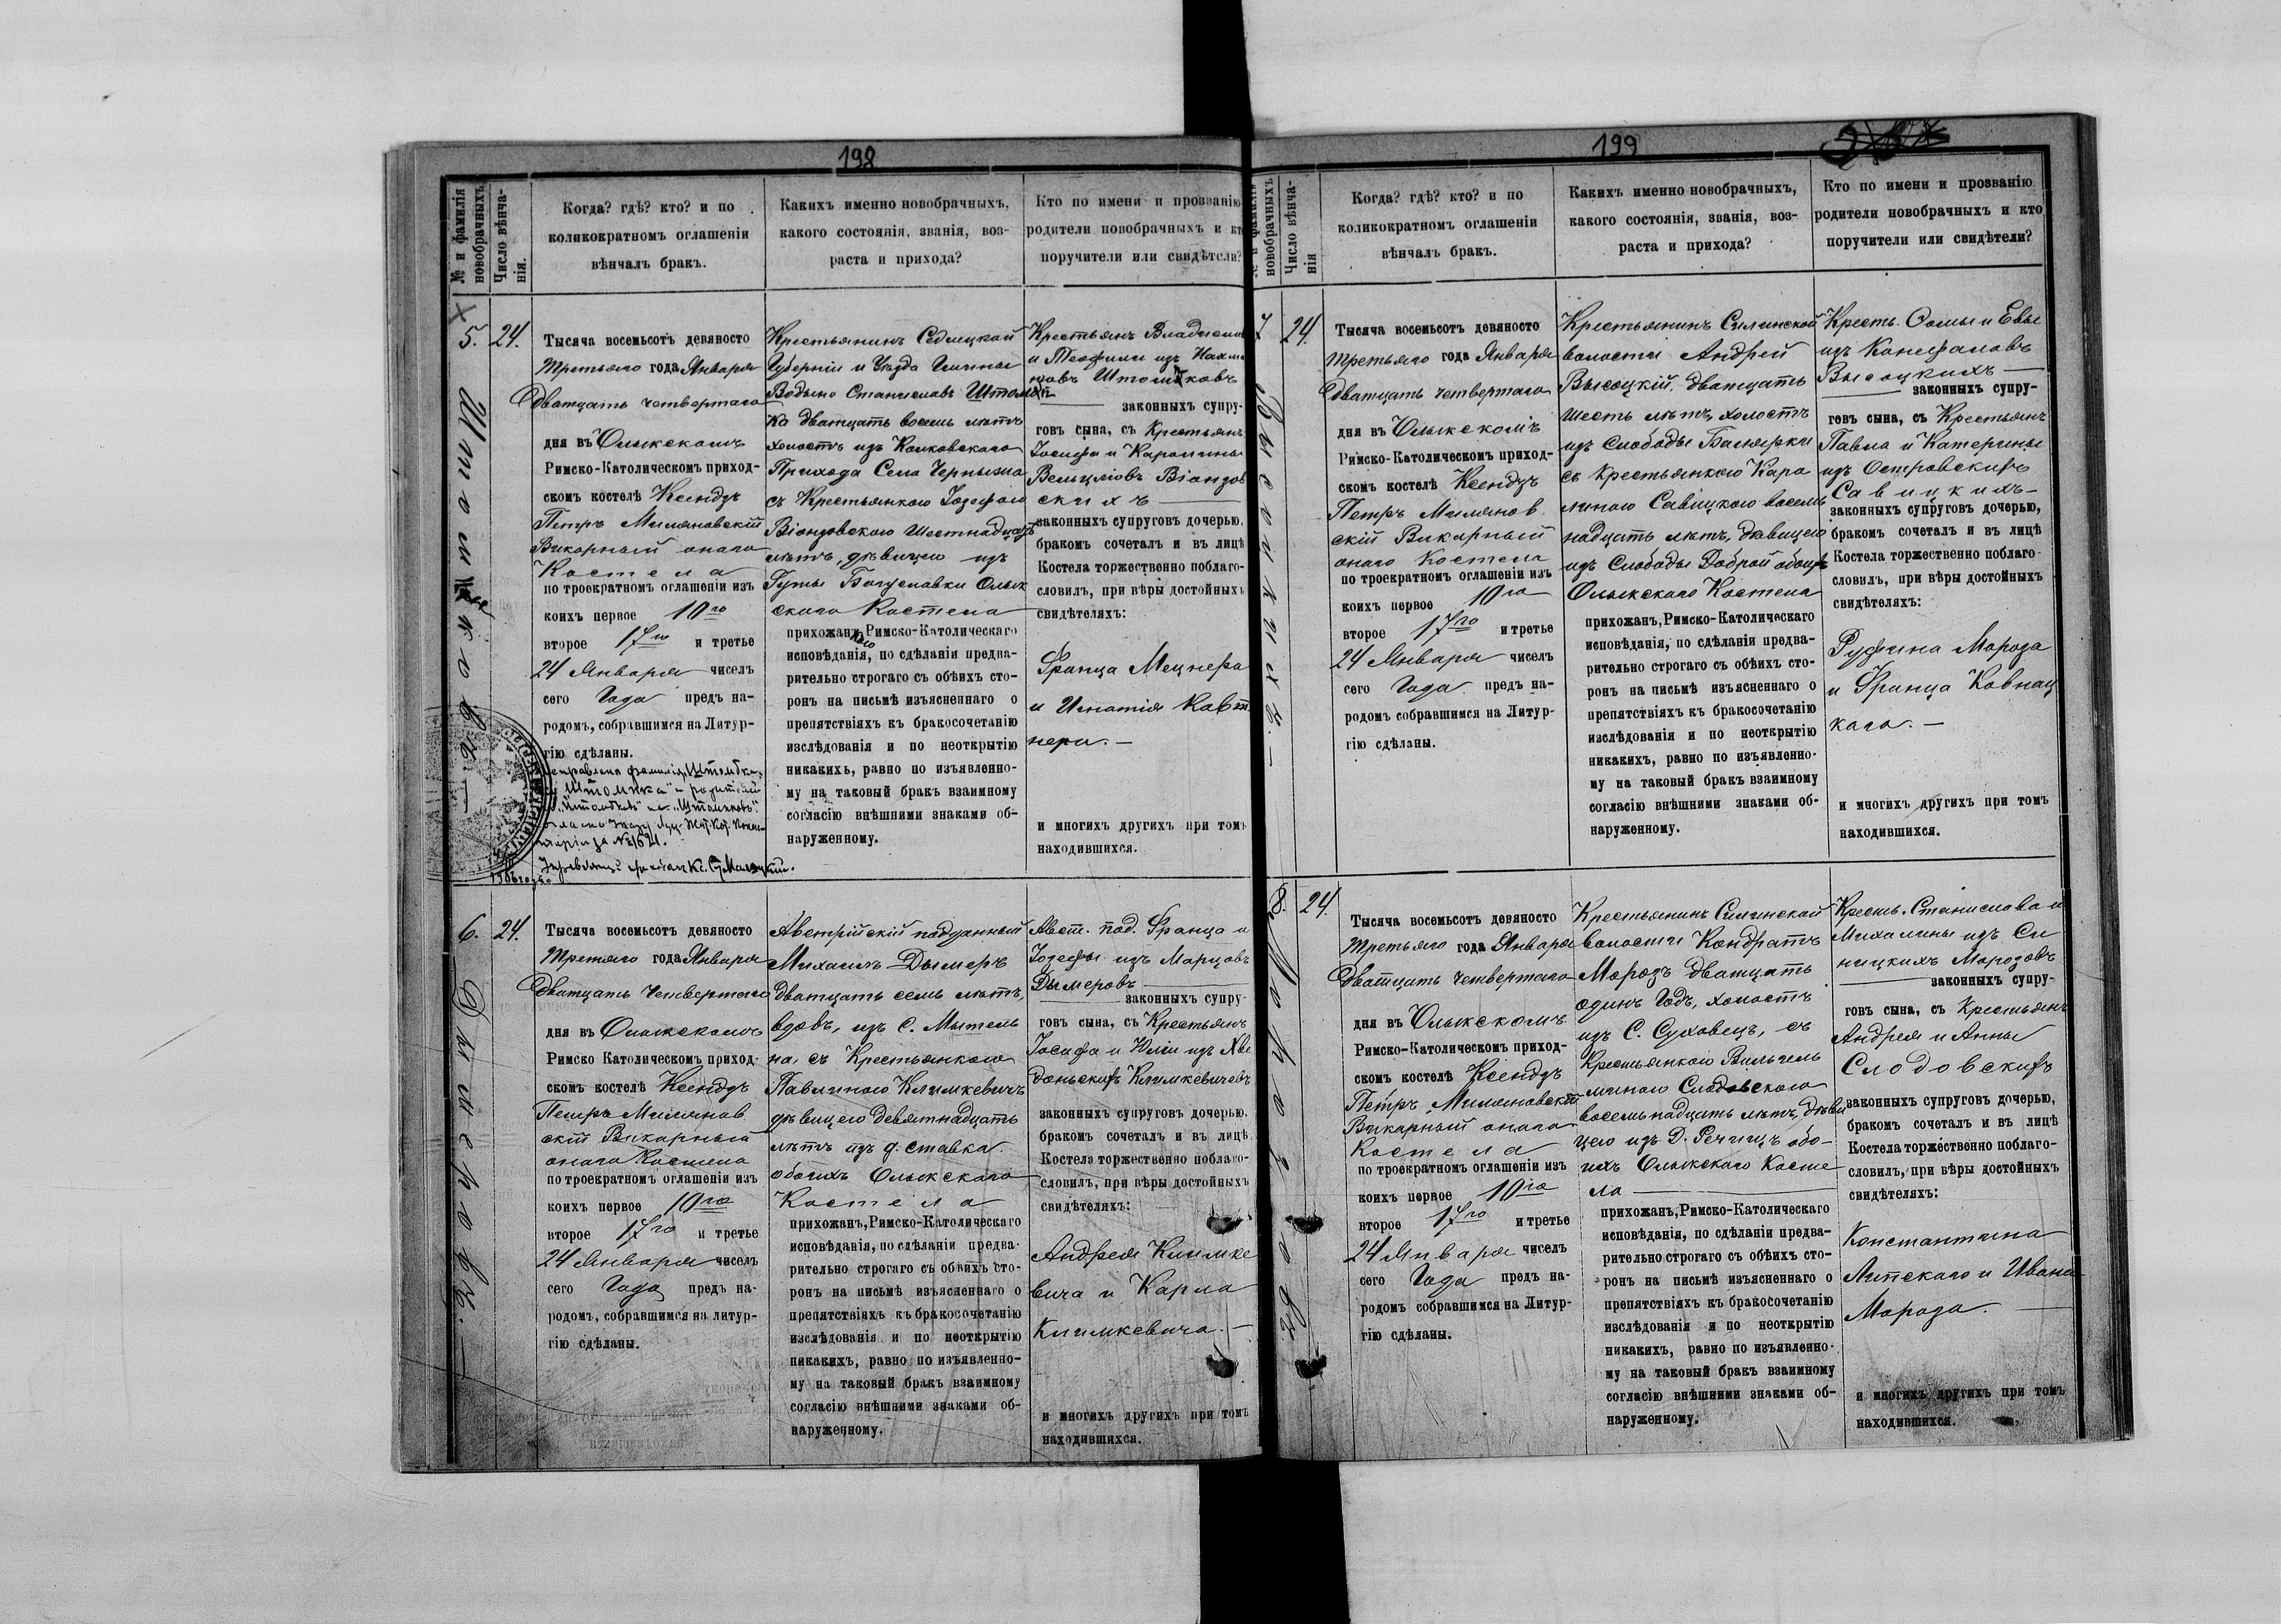 198
№ и фамилія новобрачныхъ.
Число вѣнча-
нія.
Когда? гдѣ? кто? и по
коликократномъ оглашеніи
вѣнчалъ бракъ.
Какихъ именно новобрачныхъ,
какого состоянія, званія, воз-
раста и прихода?
Кто по имени и прозванію
родители новобрачныхъ и кто
поручители или свидѣтели?
5.
24.
Тысяча восемьсотъ девяносто
Третьяго года Января
Двадцать четвертаго
дня въ Олыкскомъ
Римско-Католическомъ приход-
скомъ костелѣ Ксендзъ
Петръ Миляновскій
Викарный онаго
Костела
по троекратномъ оглашеніи изъ
коихъ первое 10го
второе 17го и третье
24 Января чиселъ
сего Года предъ на-
родомъ, собравшимся на Литур-
гію сдѣланы.
Крестьянинъ Седлецкой
Губерніи и Уѣзда Гмины
Водыне Станиславъ Штом
ка двадцать восемь лѣтъ
холостъ изъ Колковскаго
Прихода Села Черныжа
съ Крестьянкою Іозефою
Віонзовскою Шестнадцать
лѣтъ, дѣвицею изъ
Гуты Богуславки Олык
скаго Костела
прихожан, Римско-Католическаго
исповѣданія, по сдѣланіи предва-
рительно строгаго съ обѣихъ сто-
ронъ на письмѣ изъясненнаго о
препятствіяхъ къ бракосочетанію
изслѣдованія и по неоткрытію
никакихъ, равно по изъявленно-
му на таковый бракъ взаимному
согласію внѣшними знаками об-
наруженному.
Крестьянъ
и Теофили изъ
законныхъ супру-
говъ сына, съ Крестьянъ
Іосифа и Каролины
Віонзов
скихъ
законныхъ супруговъ дочерью,
бракомъ сочеталъ и въ лицѣ
Костела торжественно поблаго-
словилъ, при вѣры достойныхъ
свидѣтеляхъ:
Франца Мецнера
и Игнатія
и многихъ другихъ при томъ
находившихся.
6.
24.
Дымеровъ.
Тысяча восемьсотъ девяносто
Третяго года Января
Двадцать Четвертаго
дня въ Олыкскомъ
Римско Католическомъ приход-
скомъ костелѣ Ксендзъ
Петръ Милянов
скій Викарный
онаго Костела
по троекратномъ оглашеніи изъ
коихъ первое 10го
второе 17го и третье
24 Января чиселъ
сего Года предъ на-
родомъ, собравшимся на литур-
гію сдѣланы.
Австрійскій подданный
Михаилъ Дымеръ
двадцать семь лѣтъ,
вдовъ, изъ С. Мытель
на, съ Крестьянкою
Павлиною Климкевичъ
дѣвицею девятнадцать
лѣтъ изъ д. Ставка
обоихъ Олыкскаго
Костела
прихожанъ, Римско-Католическаго
исповѣданія, по сдѣланіи предва-
рительно строгаго съ обѣихъ сто-
ронъ на письмѣ изъясненнаго о
препятствіяхъ къ бракосочетанію
изслѣдованія и по неоткрытію
никакихъ, равно по изъявленно-
му на таковый бракъ взаимному
согласію внѣшними знаками об-
наруженному.
Авст. под. Франца и
Іозефы изъ Марцовъ
Дымеровъ
законныхъ супру-
говъ сына, съ Крестьянъ
Іосифа и Юліи изъ Хве
доньскихъ Климкевичевъ
законныхъ супруговъ дочерью,
бракомъ сочеталъ и въ лицѣ
Костела торжественно поблаго-
словилъ, при вѣры достойныхъ
свидѣтеляхъ:
Андрея Климке
вича и Карла
Климкевича. —
и многихъ другихъ при томъ
находившихся.
199
новобрачныхъ
Число вѣнча-
нія
Когда? гдѣ? кто? и по
коликократномъ оглашеніи
вѣнчалъ бракъ.
Какихъ именно новобрачныхъ,
какого состоянія, званія, воз-
раста и прихода?
Кто по имени и прозванію
родители новобрачныхъ и кто
поручители или свидѣтели?
7
24.
Высоцкихъ. —
Тысяча восемьсотъ девяносто
Третьяго года Января
Двадцать четвертаго
дня въ Олыкскомъ
Римско-Католическомъ приход-
скомъ костелѣ Ксендзъ
Петръ Милянов
скій Викарный
онаго Костела
по троекратномъ оглашеніи изъ
коихъ первое 10го
второе 17го и третье
24 Января чиселъ
сего Года предъ на-
родомъ собравшимся на Литур-
гію сдѣланы.
Крестьянинъ Силинской
волости Андрей
Высоцкій, двадцать
шесть лѣтъ, холостъ
изъ Слободы Балярки
съ крестьянкою Каро
линою Савицкою восем
надцать лѣтъ, дѣвицею
изъ Слободы Доброй обоихъ
Олыкскаго Костела
прихожанъ, Римско-Католическаго
исповѣданія, по сдѣланіи предва-
рительно строгаго съ обѣихъ сто-
ронъ на письмѣ изъясненнаго о
препятствіяхъ къ бракосочетанію
изслѣдованія и по неоткрытію
никакихъ, равно по изъявленно-
му на таковый бракъ взаимному
согласію внѣшними знаками об-
наруженному.
Кресть. Ѳомы и Евы
изъ Конефаловъ
Высоцкихъ —
законныхъ супру-
говъ сына, съ Крестьянъ
Павла и Катерины
изъ Островскихъ
Савицкихъ —
законныхъ супруговъ дочерью,
бракомъ сочеталъ и въ лицѣ
Костела торжественно поблаго-
словилъ, при вѣры достойныхъ
свидѣтеляхъ:
Руфина Мороза
и Франца Ковнац
каго. —
и многихъ другихъ при томъ
находившихся.
8.
24.
Морозовъ
Тысяча восемьсотъ девяносто
Третьяго года Января
Двадцать четвертаго
дня въ Олыкскомъ
Римско-Католическомъ приход-
скомъ костелѣ Ксендзъ
Петръ Миляновскій
Викарный онаго
Костела
по троекратномъ оглашеніи изъ
коихъ первое 10го
второе 17го и третье
24 Января чиселъ
сего Года предъ на-
родомъ собравшимся на Литур-
гію сдѣланы.
Крестьянинъ Силинской
волости Кондратъ
Морозъ двадцать
одинъ Годъ, холостъ
изъ С. Суховецъ, съ
Крестьянкою Вильгель
миною Слодовскою
восемьнадцать лѣтъ, дѣви
цею изъ Д. Речищъ обо-
ихъ Олыкскаго Косте
ла
прихожанъ, Римско-Католическаго
исповѣданія, по сдѣланіи предва-
рительно строгаго съ обѣихъ сто-
ронъ на письмѣ изъясненнаго о
препятствіяхъ къ бракосочетанію
изслѣдованія и по неоткрытію
никакихъ, равно по изъявленно-
му на таковый бракъ взаимному
согласію внѣшними знаками об-
наруженному.
Кресть. Станислава и
Михалины изъ Си
ницкихъ Морозовъ
законныхъ супру-
говъ сына, съ Крестьянъ
Андрея и Анны
Слодовскихъ
законныхъ супруговъ дочерью,
бракомъ сочеталъ и въ лицѣ
Костела торжественно поблаго-
словилъ, при вѣры достойныхъ
свидѣтеляхъ:
Константина
Липскаго и Ивана
Мороза.
и многихъ другихъ при томъ
находившихся.